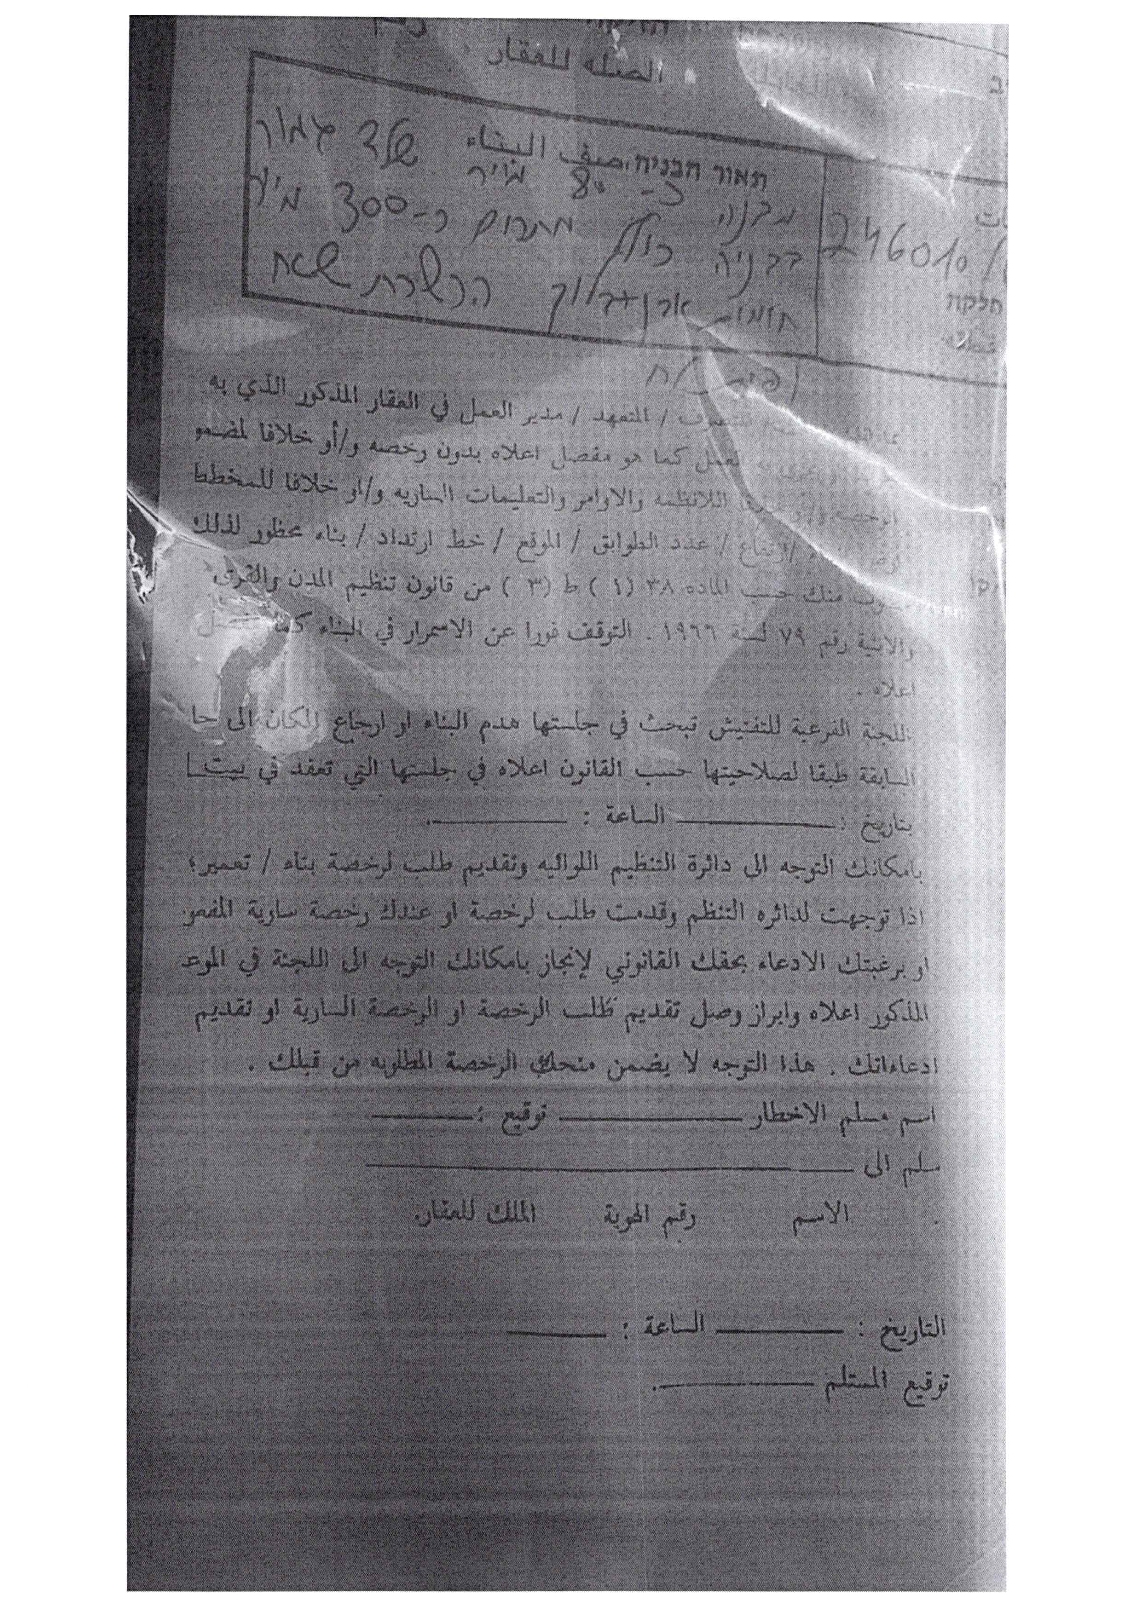 الصله للعقار
תאור הבניה، صف البناء שלד גמור
מבנה כ-80 מ״ר
בבניה כולל מתרום כ-300 מ״ר
246010/
חלקה
חומות אבן+בלוק הכשרת שטח
العمل في العقار المذكور الذي به / مدير / المتعهد
كما هو مفصل اعلاه بدون رخصه و/أو خلافا لمضمو
اللانظمه والاوامر والتعليمات الساريه و/او خلافا للمخطط
/ عدد الطوابق / الموقع / خط ارتداد / بناء محظور لذلك
منك حسب الماده ٣٨ (١) ط (٣) من قانون تنظيم المدن والقرى
والابنية رقم ٧٩ لسنة ١٩٦٦ . التوقف فورا عن الاسمرار في البناء كما
اعلاه .
اللجنة الفرعية للتفتيش تبحث في جلستها هدم البناء او ارجاع المكان الى حا
السابقة طبقا لصلاحيتها حسب القانون اعلاه في جلستها التي تعقد في بيت ا
بتاريخ : الساعة : .
بامكانك التوجه الى دائرة التنظيم اللوائيه وتقديم طلب لرخصة بناء / تعمير؛
اذا توجهت لدائره التنظم وقدمت طلب لرخصة او عندك رخصة سارية المفعو
او برغبتك الادعاء بحقك القانوني لإنجاز بامكانك التوجه الى اللجنة في الموعد
المذكور اعلاه وابراز وصل تقديم طلب الرخصة او الرخصة السارية او تقديم
ادعاءاتك . هذا التوجه لا يضمن منحك الرخصة المطلوبه من قبلك .
اسم مسلم الاخطار توقيع :
سلم الى
الاسم رقم الهوية الملك للعقار.
التاريخ : الساعة :
توقيع المستلم .